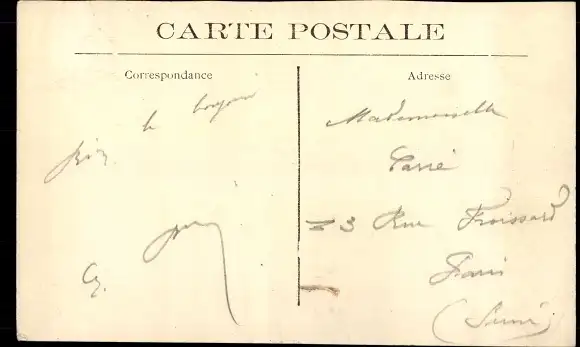 CARTE POSTALE
Correspondance
le bonjour
Adresse
Mademoiselle
Carré
3 Rue Froissard
Paris
(Seine)